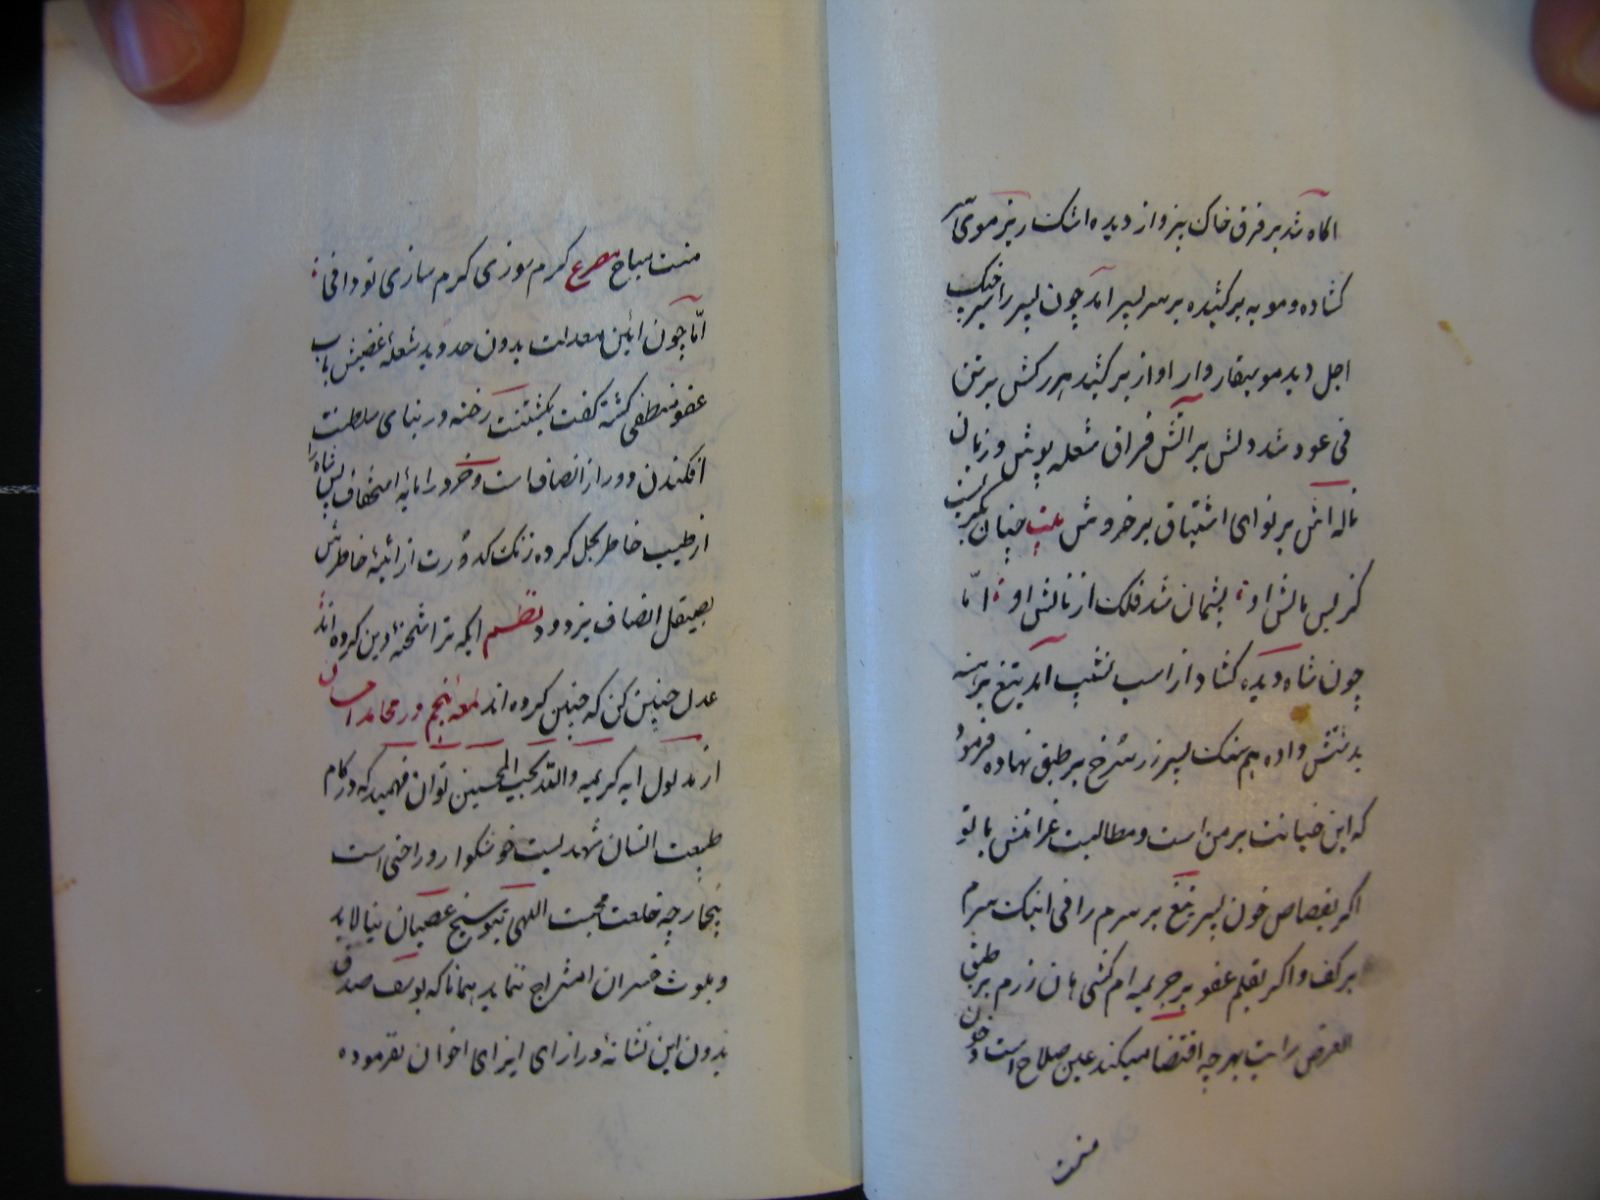 آگاه شد بر فرق خاک بیز و از دیده اشک ریز موی سر
کشاده و مویه بر کشیده بر سر پسر آمد چون پسر را بر خنک
اجل دید موسیقار وار آواز بر کشید هر رکش بر تن
نی عود شد دلش بر آتش فراق شعله پوش و زبان
ناله اش بر نوای اشتیاق بر خروش بیت چنان بگریست
کز بس نالش او پشیمان شد فلک از نالش او اما
چون شاه دیده کشاد از اسب نشیب آمد تیغ برهنه
بدستش داده هم سنک پسر زر سرخ بر طبق نهاده فرمود
که این خیانت بر من است و مطالبت غرامتش با تو
اکر بقصاص خون پسر تیغ بر سرم رانی اینک سرم
بر کف و اکر بقلم عفو بر جریمه ام کشی هان زرم بر طبق
الغرض رایت بهرچه اقتضا میکند عین صلاح است و خون
منت
منت مباح مصرع کرم سوزی کرم سازی تو دانی
اما چون آئین معدلت بدون حد دید شعله غضبش بآب
عفو منطفی کشته کفت بکشتنت رخنه در بنای سلطنت
افکندن دور از انصاف است و خرد را مایه استخفاف پس شاه را
از طیب خاطر بحل کرده زنک کدورت از آئینه خاطرش
بصیقل انصاف بزدود نظم ایکه ترا شحنه دین کرده اند
عدل چنین کن که چنین کرده اند لمعه پنجم در محامد احسان
از مدلول آیه کریمه والله یحب المحسنین توان فهمید که در کام
طبیعت انسان شهدیست خوشکوار و راحتی است
بنجارچه خلعت محبت اللهی بتوسیخ عصیان نیالاید
و بلوث خسران امتزاج ننماید همانا که یوسف صدق
بدون این نشانه در ازای ایزای اخوان نفرموده